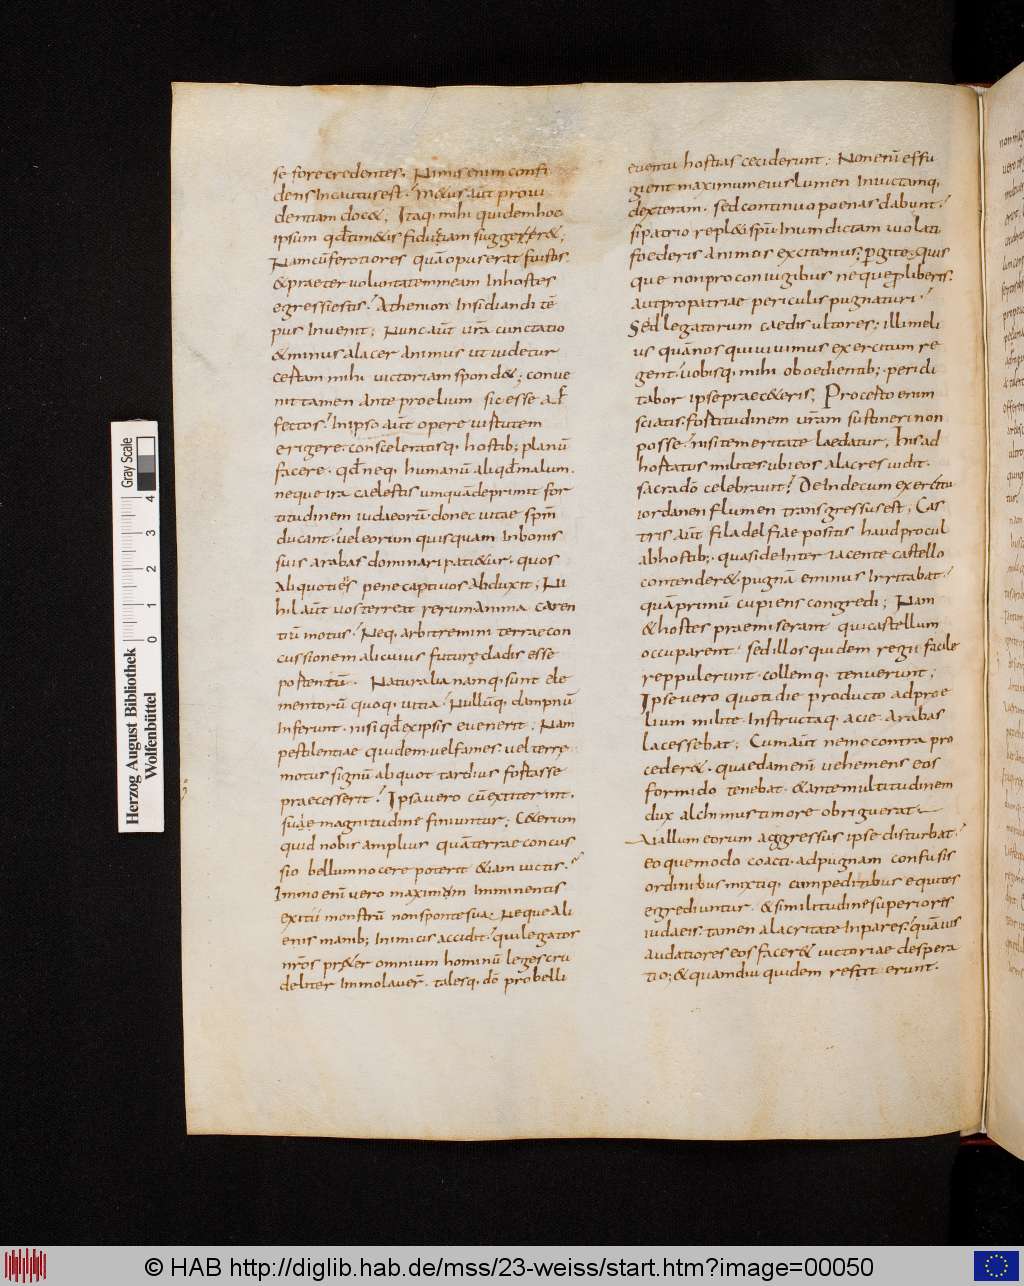 se fore credentes. Nimis enim confi
dens Incautus est. In&us aūt provi
dentiam doc&; Itaq; mihi quidem hoc
ipsum qd̄ tim&is fiduciam sugger&;
Nam cū ferotiores quā opus erat fuistis
& praeter voluntatem meam In hostes
egressi estis. Athenion Insidiandi tē
pus Invenit; Nunc aūt vrā cunctatio
& minus alacer animus ut videtur
certam mihi victoriam spond&; conve
nit tamen ante proelium sic esse af
fectos. In ipso aūt opere virtutem
erigere. consceleratisq; hostib; planū
facere. qd̄ neq; humanū aliqd̄ malum.
neque ira caelestis umquā deprimit for
titudinem iudaeorū. donec vitae spm̄
ducant. vel eorum quisquam In bonis
suis arabas dominari pati&ur. quos
aliquotiens pene captivos abduxit; Ni
hil aūt vos terreat rerum anima caren
tiū motus. Neq; arbitremini terrae con
cussionem alicuius futurę cladis esse
postentū. Naturalia namq; sunt ele
mentorū quoq; vitia. Nullūq; dampnū
Inferunt. nisi qd̄ ex ipsis evenerit; Nam
pestilentiae quidem. vel fames. vel terrę
motus signū aliquot tardius fortasse
praecesserit. Ipsa vero cū extiterint.
suae magnitudine finiuntur; C&erum
quid nobis amplius quā terrae concus
sio bellum nocere poterit &iam victis.
Immo enī vero maximum Imminentis
exitii monstrū non sponte sua. Neque ali
enis manib; Inimicis accidit. qui legatos
nrōs pr&er omnium hominū leges cru
deliter Immolaver̄. talesq; dō pro belli
eventu hostias ceciderunt; Non enī effu
gient maximum eius lumen Invictamq;
dexteram. sed continuo poenas dabunt.
si patrio repl&i spū Inum dictam violati
foederis animis excitemus; pergite quis
que non pro coniugibus neque pro liberis.
aut pro patriae periculis pugnaturi.
Sed legatorum caedis ultores; illi meli
us quā nos qui vivimus exercitum re
gent. vobisq; mihi oboedientib; peridi
tabor ipse praec&eris; Procesto enim
sciatis. fostitudinem vrām sustineri non
posse. nisi temeritate laedatur; his ad
hortatus milites ubi eos alacres vidit.
sacra dō celebravit. Deinde cum exercitu
iordanen flumen transgressus est; Cas
tris aūt filadelfiae positis haud procul
ab hostib;. quasi de Interiacente castello
contender& pugnā eminus Irritabat.
quā primū cupiens congredi; Nam
& hostes praemiserant qui castellum
occuparent. sed illos quidem regii facile
reppulerunt. collemq; tenuerunt;
Ipse vero quotidie producto ad proe
lium milite. Instructaq; acie. Arabas
lacessebat; Cum aūt nemo contra pro
ceder&. quaedam enī vehemens eos
formido tenebat. & ante multitudinem
dux alchimus timore obriguerat
Vallum eorum aggressus ipse disturbat.
eo quemodo coacti. ad pugnam confusis
ordinibus mixtiq; cum peditibus equites
egrediuntur. & similitudine superiores
iudaeis. tamen alacritate Inpares. quāvis
audatiores eos facer& victoriae despera
tio; & quamdiu quidem restit erunt.
Herzog August Bibliothek
Wolfenbüttel
Gray Scale
0 1 2 3 4
© HAB http://diglib.hab.de/mss/23-weiss/start.htm?image=00050